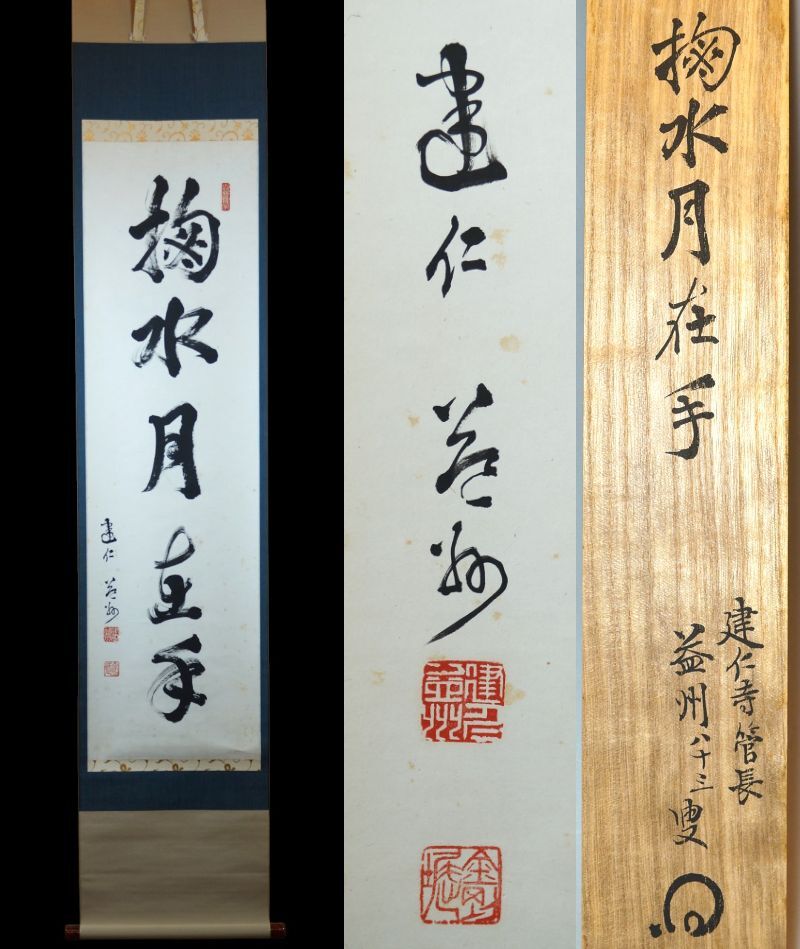 掬水月在手
建仁 益州
建仁 益州
建仁益州
掬水月在手
建仁寺管長
益州八十三叟